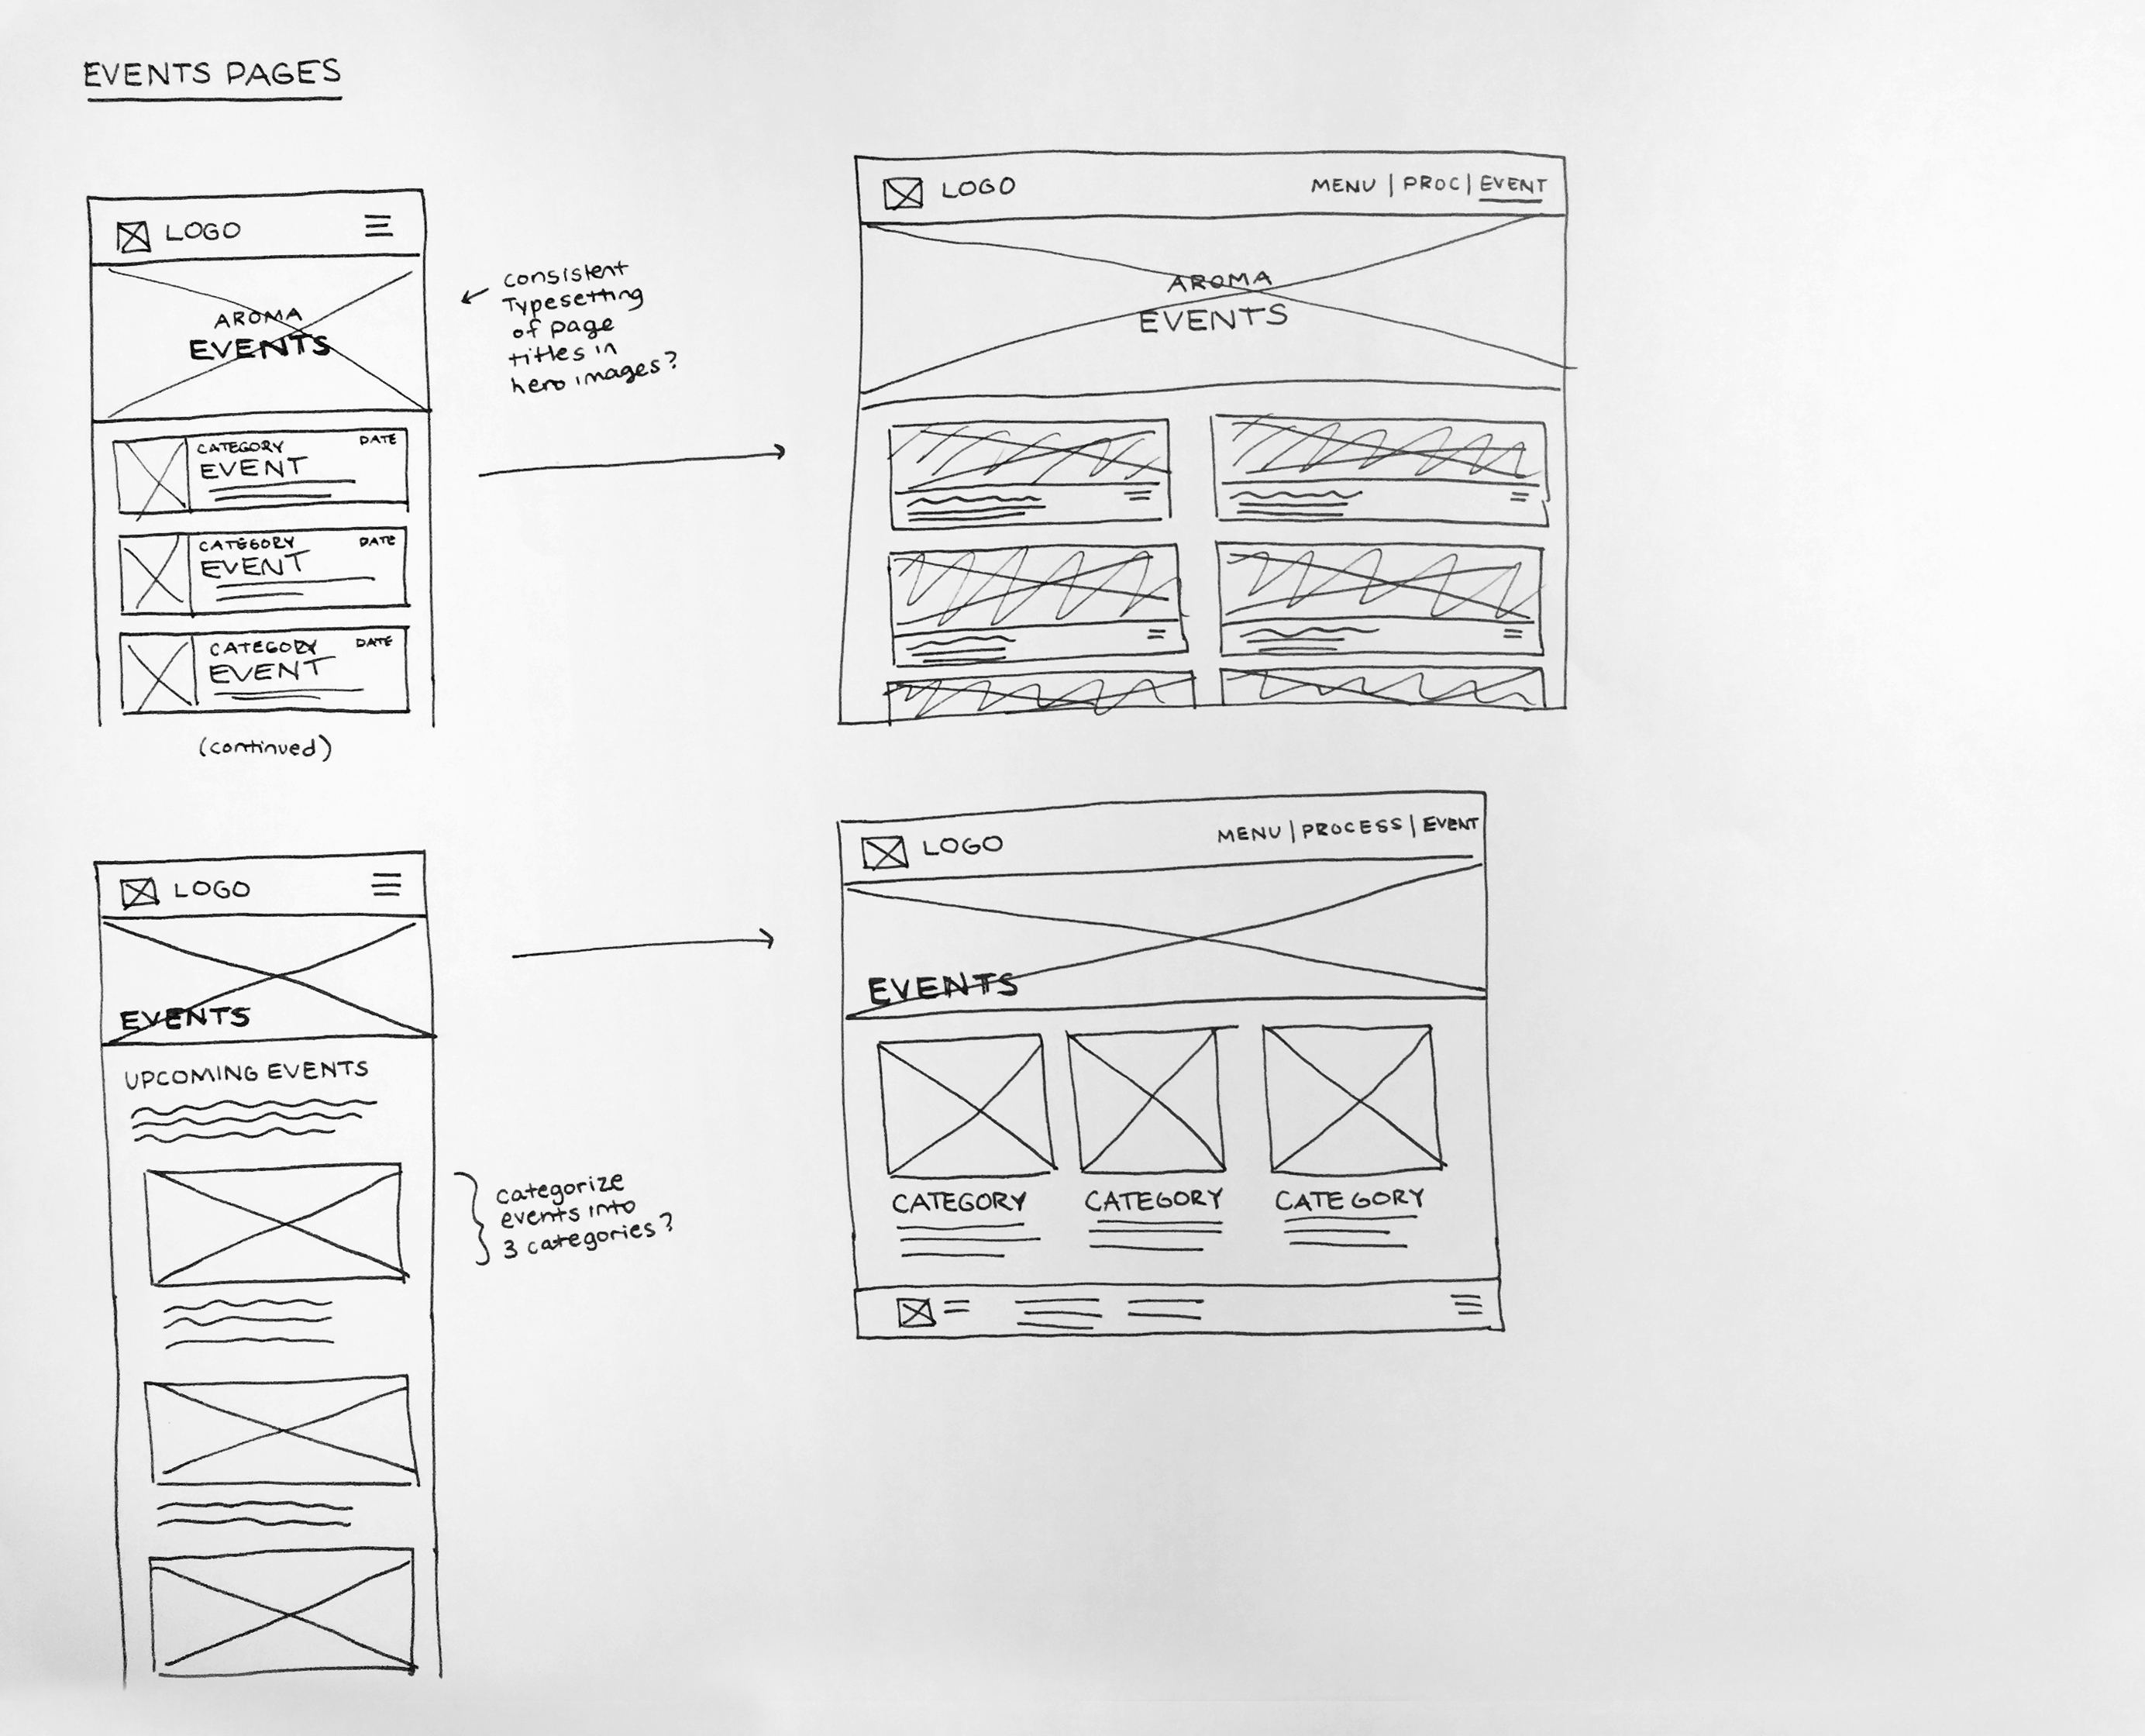 EVENTS PAGES
LOGO
AROMA
EVENTS
CATEGORY DATE
EVENT
CATEGORY DATE
EVENT
CATEGORY DATE
EVENT
(continued)
consistent
Typesetting
of page
titles in
hero images?
LOGO MENU | PROC | EVENT
AROMA
EVENTS
LOGO
EVENTS
UPCOMING EVENTS
categorize
events into
3 categories?
LOGO MENU | PROCESS | EVENT
EVENTS
CATEGORY CATEGORY CATEGORY